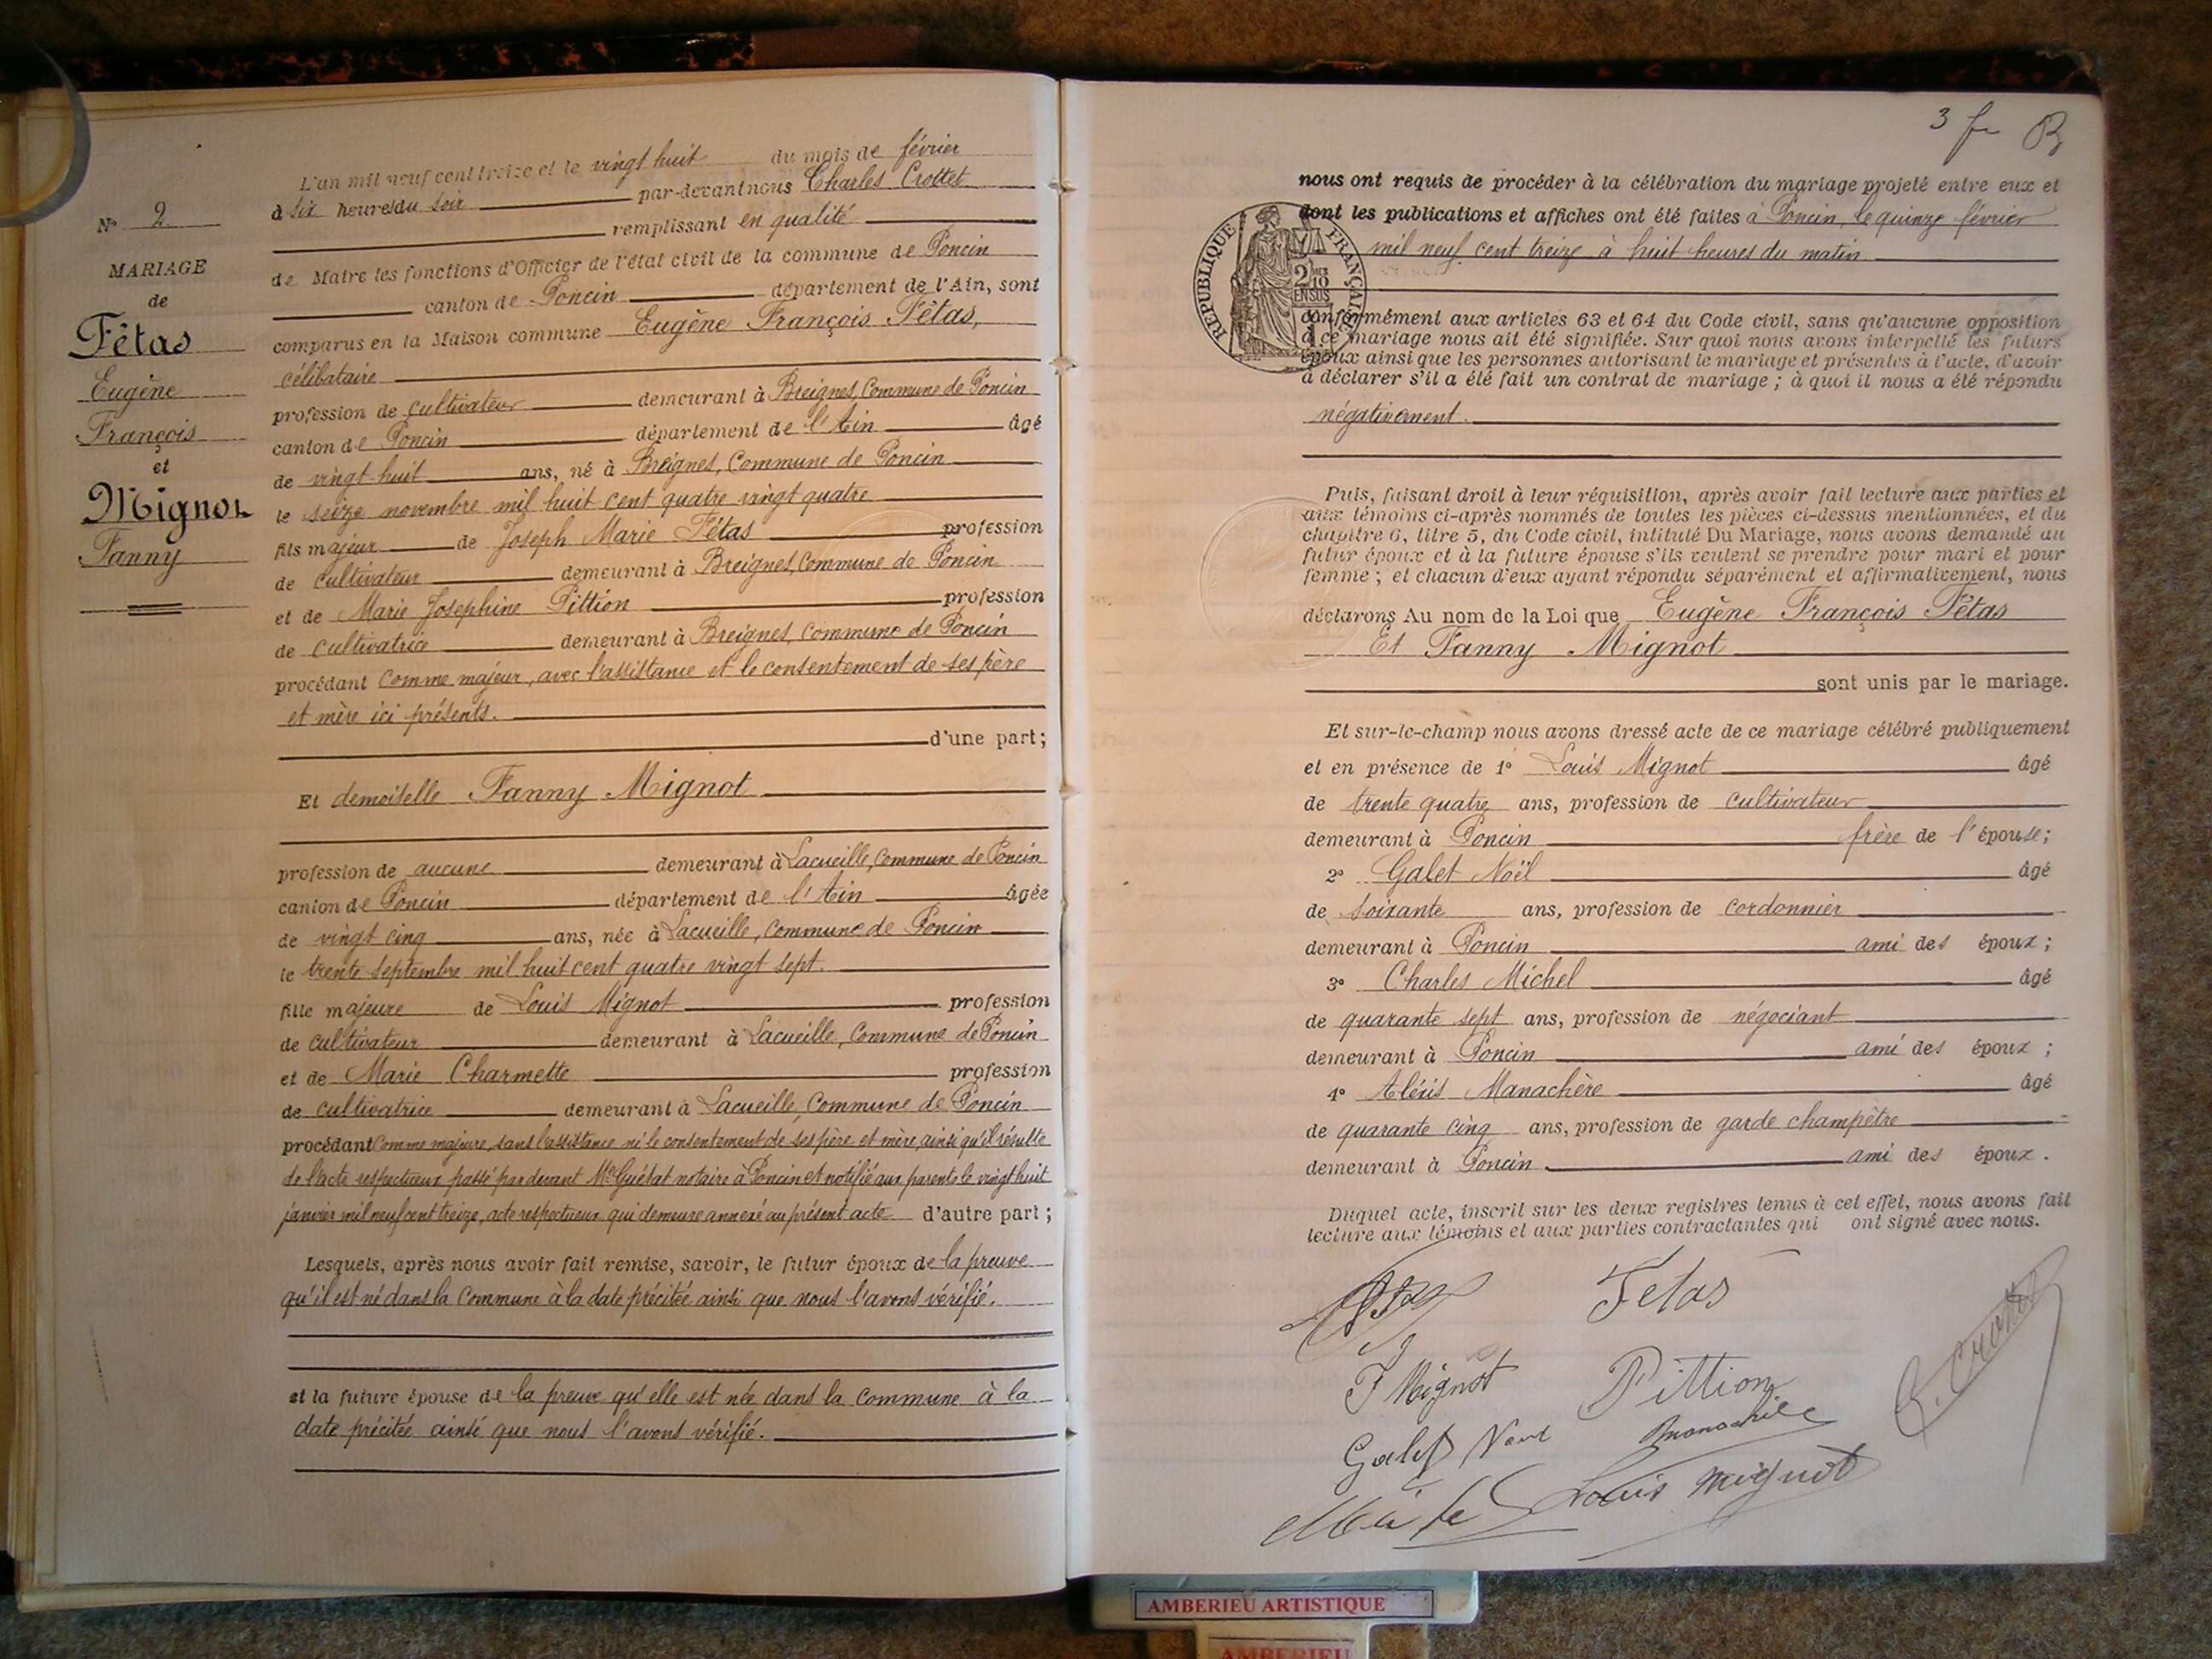 N° 2
MARIAGE
de
Fêtas
Eugène
François
et
Mignot
Fanny
L'an mil neuf cent treize et le vingt huit du mois de février
à six heures du soir par-devant nous Charles Crottet
remplissant en qualité
de Maire les fonctions d'Officier de l'état civil de la commune de Poncin
canton de Poncin département de l'Ain, sont
comparus en la Maison commune Eugène François Fêtas,
célibataire
profession de cultivateur demeurant à Breignes, Commune de Poncin
canton de Poncin département de l'Ain âgé
de vingt-huit ans, né à Breignes, Commune de Poncin
le seize novembre mil huit cent quatre vingt quatre
fils majeur de Joseph Marie Fétas profession
de cultivateur demeurant à Breignes, Commune de Poncin
et de Marie Josephine Pittion profession
de cultivatrice demeurant à Breignes, Commune de Poncin
procédant comme majeur, avec l'assistance et le consentement de ses père
et mère ici présents.
d'une part;
Et demoiselle Fanny Mignot
profession de aucune demeurant à Lacueille, Commune de Poncin
canton de Poncin département de l'Ain âgée
de vingt cinq ans, née à Lacueille, Commune de Poncin
le trente septembre mil huit cent quatre vingt sept.
fille majeure de Louis Mignot profession
de cultivateur demeurant à Lacueille, Commune de Poncin
et de Marie Charmette profession
de cultivatrice demeurant à Lacueille, Commune de Poncin
procédant comme majeure, sans l'assistance ni le consentement de ses père et mère, ainsi qu'il résulte
de l'acte respectueux passé par devant Me Guétat notaire à Poncin et notifié aux parents le vingt huit
janvier mil neuf cent treize, acte respectueux qui demeure annexé au présent acte d'autre part;
Lesquels, après nous avoir fait remise, savoir, le futur époux de la preuve
qu'il est né dans la Commune à la date précitée ainsi que nous l'avons vérifié.
et la future épouse de la preuve qu'elle est née dans la Commune à la
date précitée ainsi que nous l'avons vérifié.
3 fr
nous ont requis de procéder à la célébration du mariage projeté entre eux et
dont les publications et affiches ont été faites à Poncin, le quinze février
mil neuf cent treize à huit heures du matin
RÉPUBLIQUE FRANÇAISE
2/10 EN SUS
conformément aux articles 63 et 64 du Code civil, sans qu'aucune opposition
à ce mariage nous ait été signifiée. Sur quoi nous avons interpellé les futurs
époux ainsi que les personnes autorisant le mariage et présentes à l'acte, d'avoir
à déclarer s'il a été fait un contrat de mariage; à quoi il nous a été répondu
négativement.
Puis, faisant droit à leur réquisition, après avoir fait lecture aux parties et
aux témoins ci-après nommés de toutes les pièces ci-dessus mentionnées, et du
chapitre 6, titre 5, du Code civil, intitulé Du Mariage, nous avons demandé au
futur époux et à la future épouse s'ils veulent se prendre pour mari et pour
femme; et chacun d'eux ayant répondu séparément et affirmativement, nous
déclarons Au nom de la Loi que Eugène François Fêtas
Et Fanny Mignot
sont unis par le mariage.
Et sur-le-champ nous avons dressé acte de ce mariage célébré publiquement
et en présence de 1° Louis Mignot âgé
de trente quatre ans, profession de cultivateur
demeurant à Poncin frère de l'épouse;
2° Galet Noël âgé
de soixante ans, profession de cordonnier
demeurant à Poncin ami des époux;
3° Charles Michel âgé
de quarante sept ans, profession de négociant
demeurant à Poncin ami des époux;
4° Aléxis Manachère âgé
de quarante cinq ans, profession de garde champêtre
demeurant à Poncin ami des époux.
Duquel acte, inscrit sur les deux registres tenus à cet effet, nous avons fait
lecture aux témoins et aux parties contractantes qui ont signé avec nous.
Fetas
F Mignot Pittion
Galet
Louis Mignot
AMBERIEU ARTISTIQUE
AMBERIEU